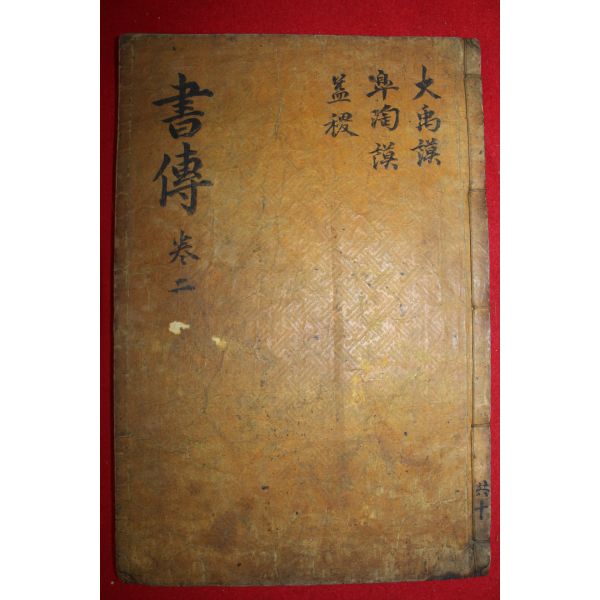 大禹謨
臯陶謨
益稷
書傳 卷二
共十